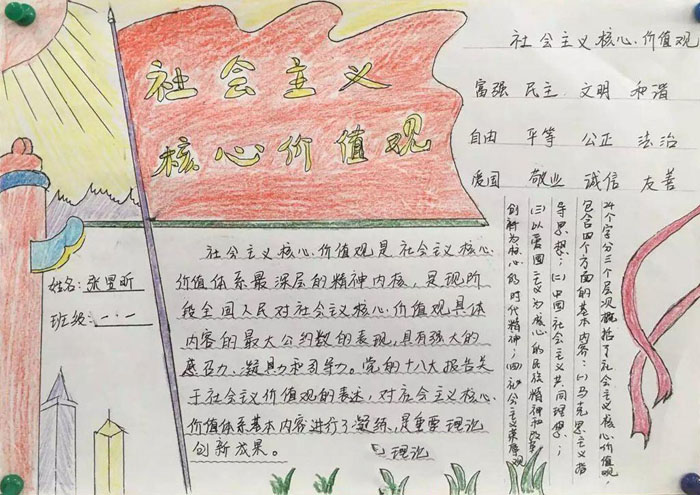 社会主义
核心价值观
社会主义核心价值观
富强 民主 文明 和谐
自由 平等 公正 法治
爱国 敬业 诚信 友善
姓名:张里昕
班级:一·一
社会主义核心价值观是社会主义核心
价值体系最深层的精神内核,是现阶
段全国人民对社会主义核心价值观具体
内容的最大公约数的表现,具有强大的
感召力、凝具力和引导力。党的十八大报告关
于社会主义价值观的表述,对社会主义核心
价值体系基本内容进行了凝练,是重要理论
创新成果。
理论
24个字分三个层次概括了社会主义核心价值观,
包含四个方面的基本内容:(一)马克思主义指
导思想;(二)中国社会主义共同理想;
(三)以爱国主义为核心的民族精神和改革
创新为核心的时代精神;(四)社会主义荣辱观